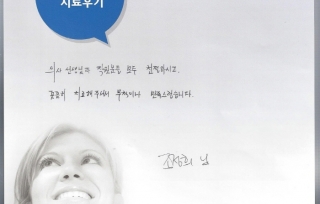 치료후기
의사 선생님과 직원분들 모두 친절하시고.
꼼꼼히 치료해주셔서 무척이나 만족스럽습니다.
조정희 님